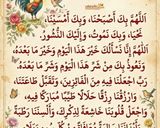 اللَّهُمَّ بِكَ أَصْبَحْنَا، وَبِكَ أَمْسَيْنَا،
نَحْيَا، وَبِكَ نَمُوتُ، وَإِلَيْكَ النُّشُورُ.
اللَّهُمَّ إِنَّا نَسْأَلُكَ خَيْرَ هَذَا الْيَوْمِ وَخَيْرَ مَا بَعْدَهُ،
وَنَعُوذُ بِكَ مِنْ شَرِّ هَذَا الْيَوْمِ وَشَرِّ مَا بَعْدَهُ.
رَبِّ اجْعَلْنَا فِيهِ مِنَ الْفَائِزِينَ، وَتَقَبَّلْ طَاعَتَنَا،
وَارْزُقْنَا رِزْقًا حَلَالًا طَيِّبًا مُبَارَكًا فِيهِ،
وَاجْعَلْ قُلُوبَنَا خَاشِعَةً لِذِكْرِكَ، وَأَلْسِنَتَنَا رَطْبَةً